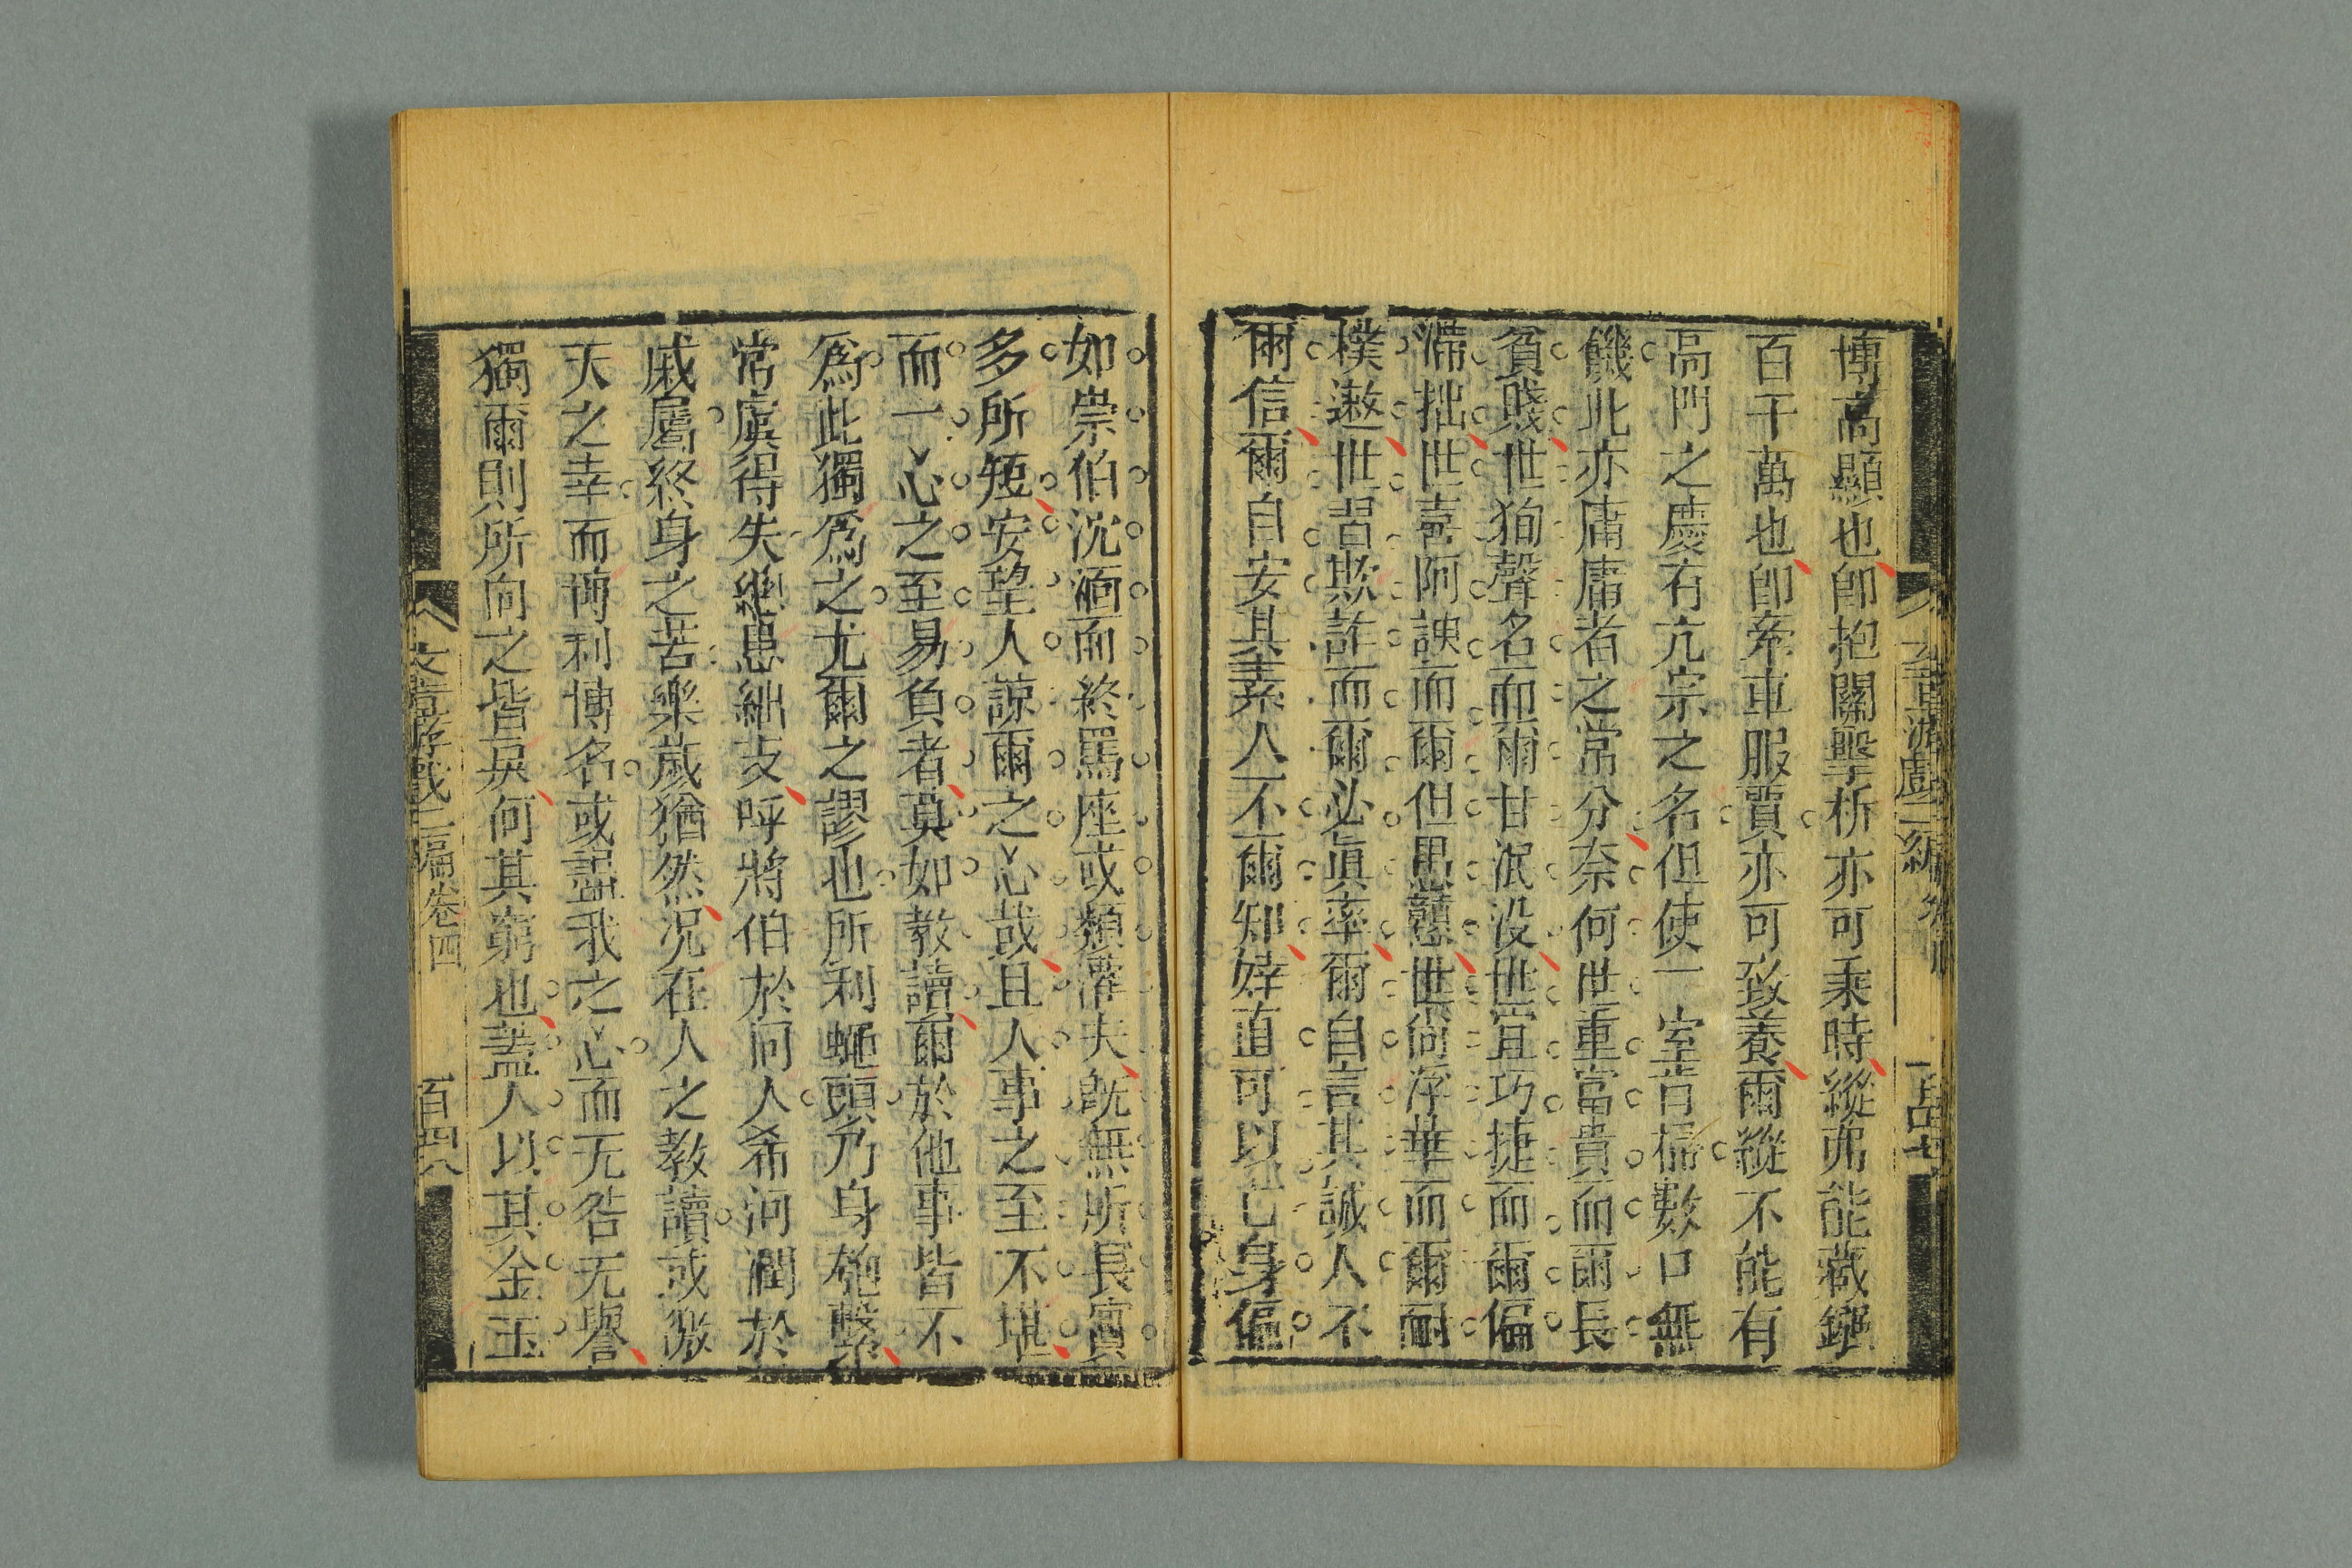 博高顯也卽抱關擊柝亦可乘時縱弗能藏鏹
百千萬也卽牽車服賈亦可致養爾縱不能有
高門之慶有亢宗之名但使一室肯掃數口無
饑此亦庸庸者之常分奈何世重富貴而爾長
貧賤世狥聲名而爾甘泯没世宜巧捷而爾偏
滯拙世喜阿諛而爾但愚戇世尙浮華而爾耐
樸遬世習欺詐而爾必眞率爾自言其誠人不
爾信爾自安其素人不爾知婞直可以亡身偏
如崇伯沈湎而終罵座或類灌夫旣無所長實
多所短安望人諒爾之心哉且人事之至不堪
而一心之至易負者莫如教讀爾於他事皆不
爲此獨爲之尤爾之謬也所利蠅頭乃身匏繫
常虞得失繼患絀支呼將伯於同人希河潤於
戚屬終身之苦樂歲猶然况在人之教讀或激
天之幸而博利博名或盡我之心而无咎无譽
獨爾則所向之皆戾何其窮也蓋人以其金玉
文章游戲二編卷四
百四八